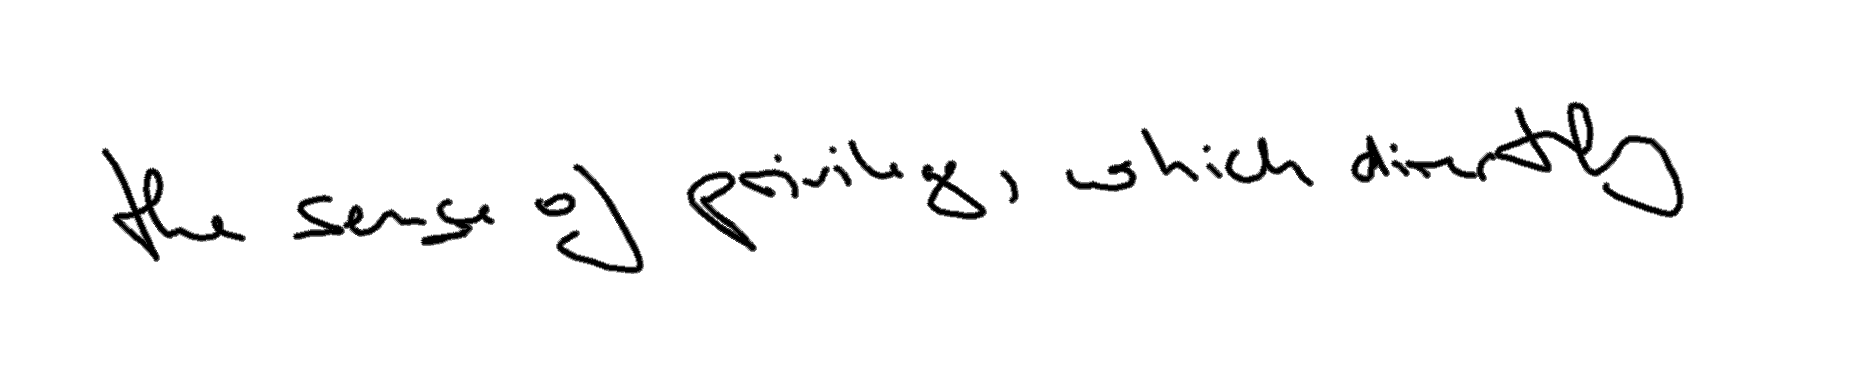 the sense of privilege, which directly